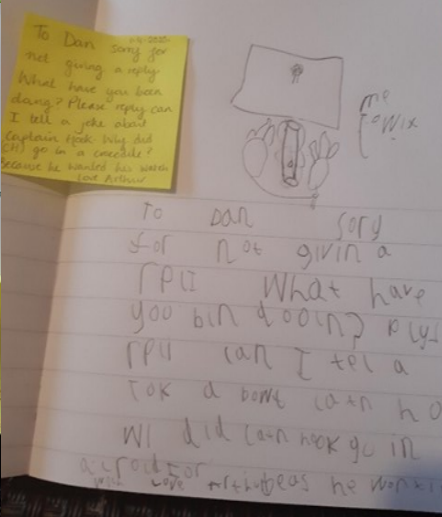 To Dan sorry for
not giving a reply
What have you been
doing? Please reply can
I tell a joke about
Captain Hook. Why did
(CH) go in a crocodile?
Because he wanted his watch
Love Arthur
me
To Dan Sory
for not givin a
rpli What have
you bin dooin?
rpli can I tel a
Wi did Catn hook go in
he